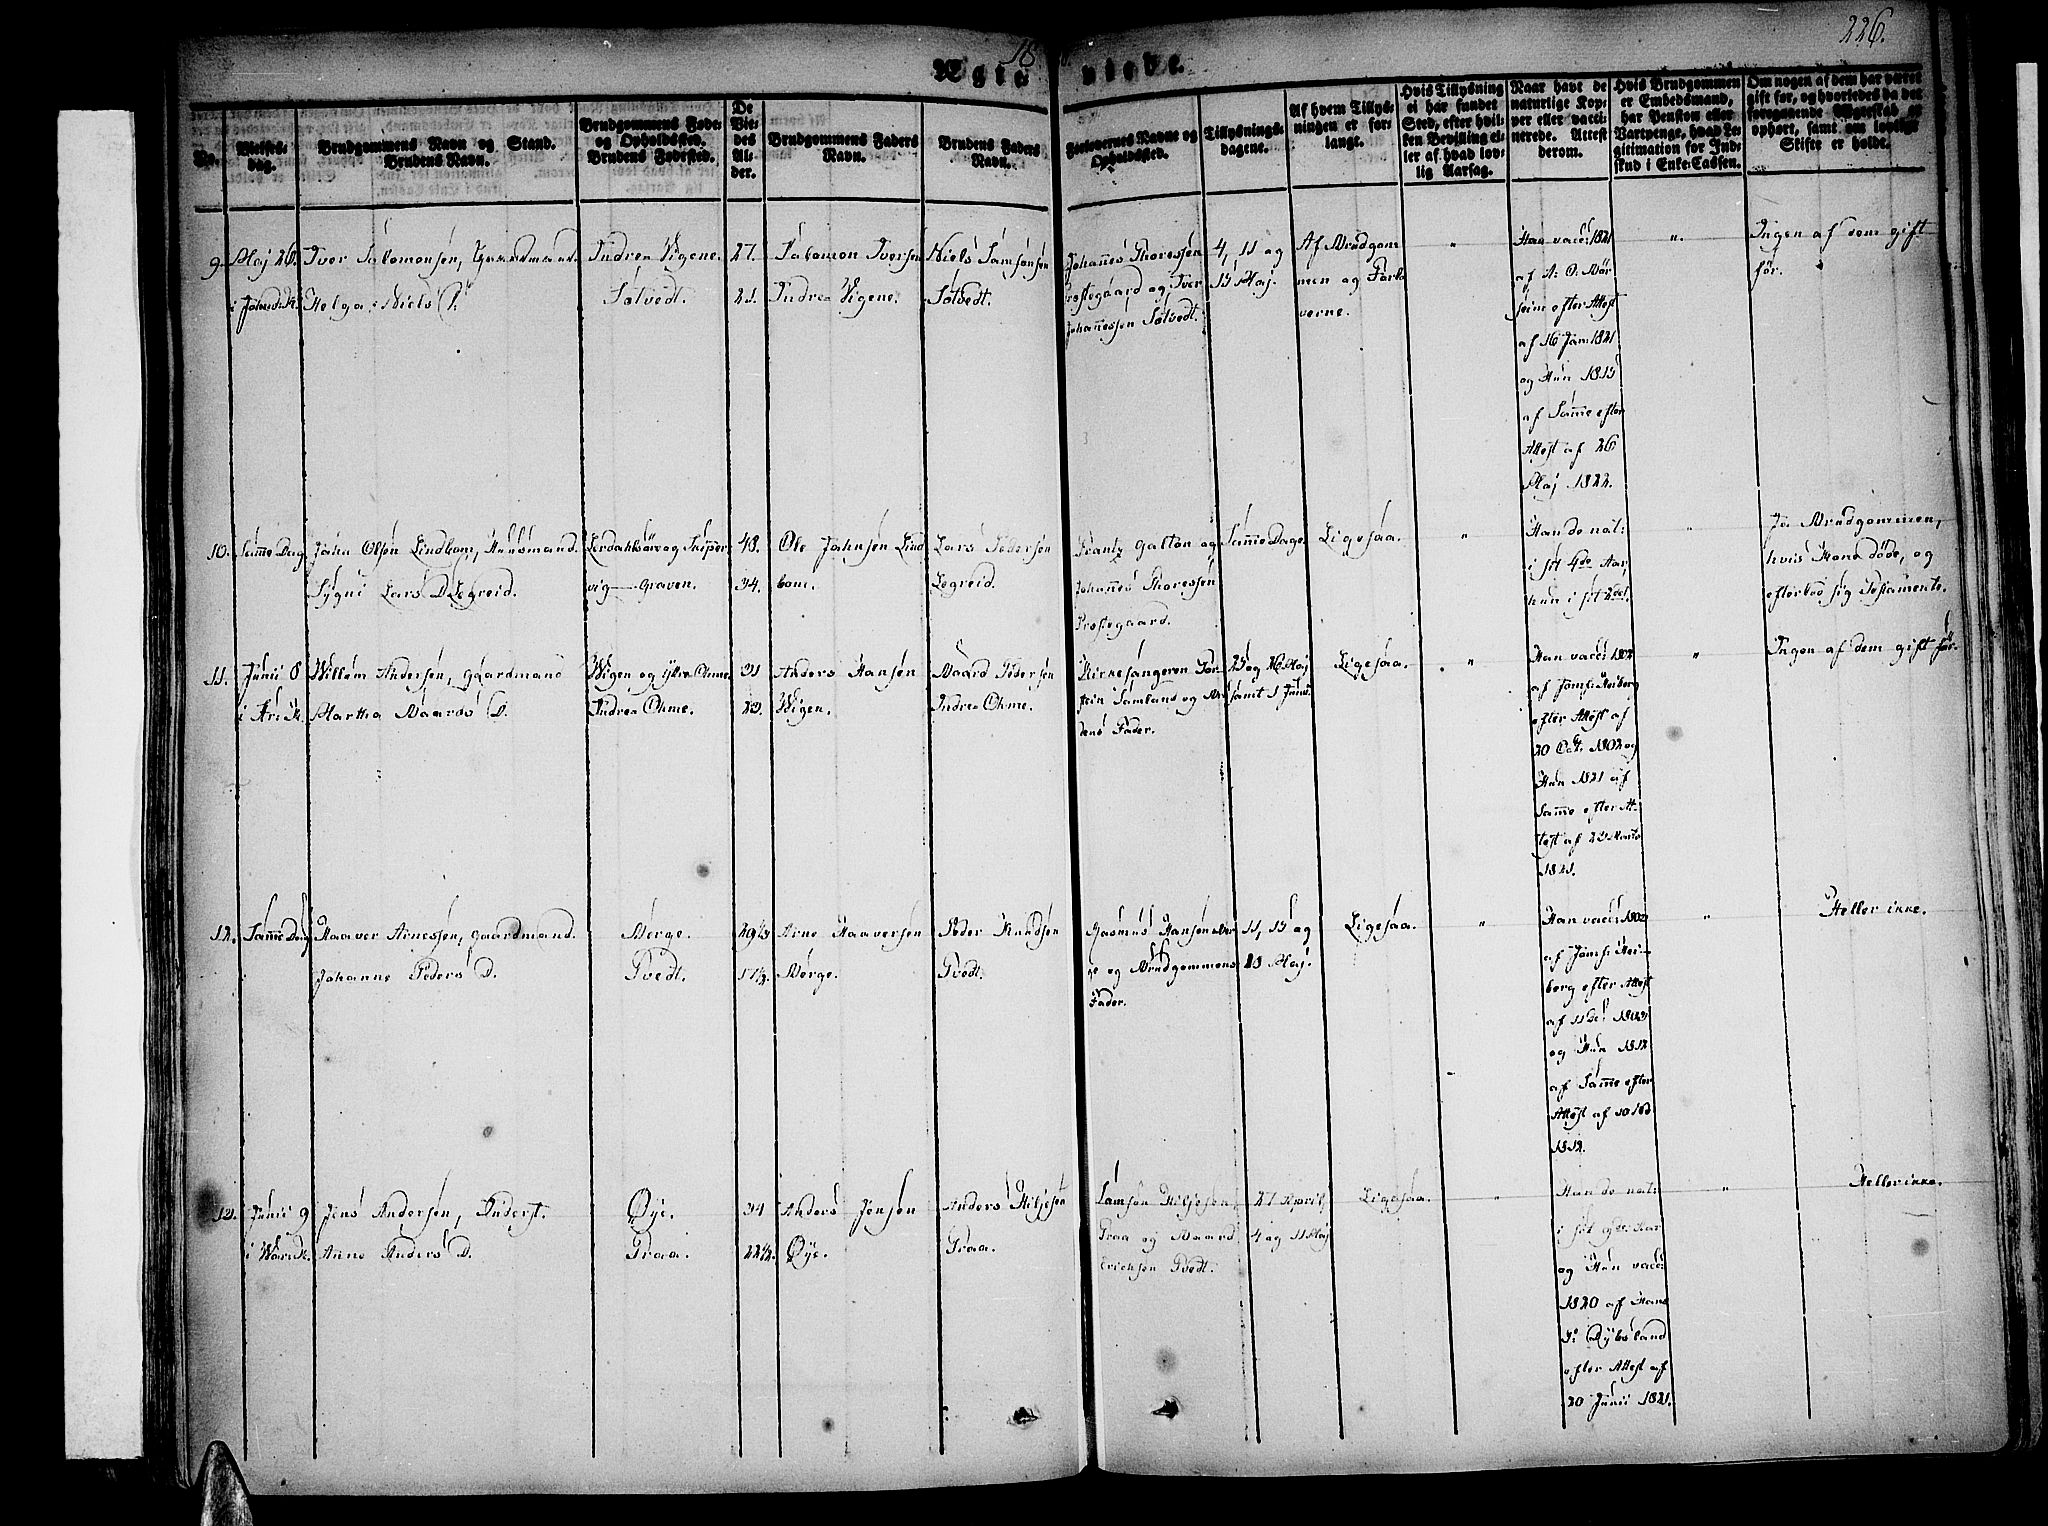 226.
18
Ægte viede.
No.
Vielses-
dag.
Brudgommens Navn og Stand.
Brudens Navn.
Brudgommens Føde-
og Opholdssted.
Brudens Fødested.
De
Vie-
des
Al-
der.
Brudgommens Faders
Navn.
Brudens Faders
Navn.
Forlovernes Navne og
Opholdssted.
Tillysnings-
dagene.
Af hvem Tillys-
ningen er for-
langt.
Hvis Tillysning
ei har fundet
Sted, efter hvil-
ken Bevilling el-
ler af hvad lov-
lig Aarsag.
Naar havt de
naturlige Kop-
per eller vacci-
nerede. Attest
derom.
Hvis Brudgommen
er Embedsmand,
har Pension eller
Vartpenge, hvad Le-
gitimation for Ind-
skud i Enke-Cassen.
Om nogen af dem har været
gift før, og hvorledes da det
foregaaende Ægteskab er
ophørt, samt om lovligt
Skifte er holdt.
9. Maj 26.
Iver Salomonsen, Gaardmand.
Helga Niels D.
Indre Vigene.
Sætvedt.
27.
21.
Salomon Iversen
Indre Vigene.
Niels Samsonsen
Sætvedt.
Johannes Thoresen
Prostegaard og Iver
Johannesen Sætvedt.
4, 11 og
15 Maj.
Af Brudgom
men og Forlo
verne.
"
Han vacc: 1821
af A: O: Bør
seim efter Attest
af 16 Jan: 1821
og Hun 1815
af Samme efter
Attest af 26
Maj 1822.
".
Ingen af dem gift
før.
10. Samme Dag
John Olsen Lindbom, Huusmand.
Sygni Lars D. Legreid.
Lerdahlsøre og Skipper
vig — Graven.
48.
34.
Ole Johnsen Lind
bom.
Lars Pedersen
Legreid.
Frantz Galtøn og
Johannes Thoresen
Prostegaard.
Samme Dage.
Ligesaa.
"
Han de nat:
i sit 4de Aar,
hun i sit 2det.
"
Ja Brudgommen,
hvis Kone døde, og
efterlod sig Testamente.
11. Junii 8
Willom Andersen, Gaardmand
Martha Baards D.
Wigen og Yttre Ohme.
Indre Ohme.
31
23.
Anders Hansen
Wigen.
Baard Pedersen
Indre Ohme.
Kirkesangeren Tor
stein Samland og Bru
dens Fader.
25 og 26 Maj
samt 1 Junii.
Ligesaa.
"
Han vacc: 1802
af Jomf: Heiberg
efter Attest af
20 Oct: 1802 og
Hun 1821 af
Samme efter At
test af 23 Marts
1821.
"
Ingen af dem gift før.
12. Samme Dag
Haaver Arnesen, Gaardmand.
Johanne Peders D.
Berge.
Tvedt.
17½
Arne Haaversen
Berge.
Peder Knudsen
Tvedt.
Rasmus Hansen Ber
ge og Brudgommens
Fader.
11, 15 og
Maj.
Ligesaa.
"
Han vacc: 1802
af Jomf: Hei
berg efter Attest
af 11 De:
og Hun 1812
af Samme efter
Attest af 10
1812.
"
Heller ikke.
13. Junii 9
Jens Andersen, Inderst.
Anne Anders D.
Øye.
Traa.
34
22½
Anders Jensen
Øye.
Anders Kiljesen
Traa.
Samson Kiljesen
Traa og Baard
Erichsen Tvedt.
27 April,
4 og 11 Maj
Ligesaa.
"
Han de nat:
i sit Aar
og Hun vacc:
1820 af Hans
J: Dybsland
efter Attest af
20 Junii 1821.
"
Heller ikke.